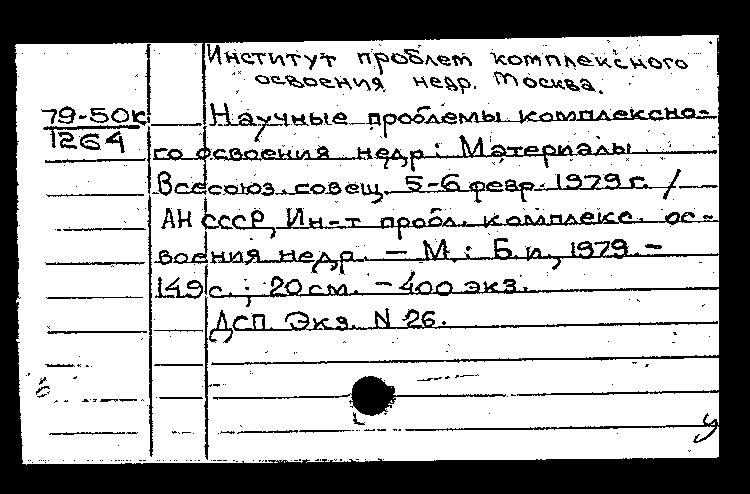 Институт проблем комплексного
освоения недр. Москва.
79-50к
1264
Научные проблемы комплексно-
го освоения недр: Материалы
Всесоюз. совещ. 5-6 февр. 1979 г. /
АН СССР, Ин-т пробл. комплекс. ос-
воения недр. — М.: Б.и., 1979. -
149 с.; 20 см. - 400 экз.
ДСП. Экз. N 26.